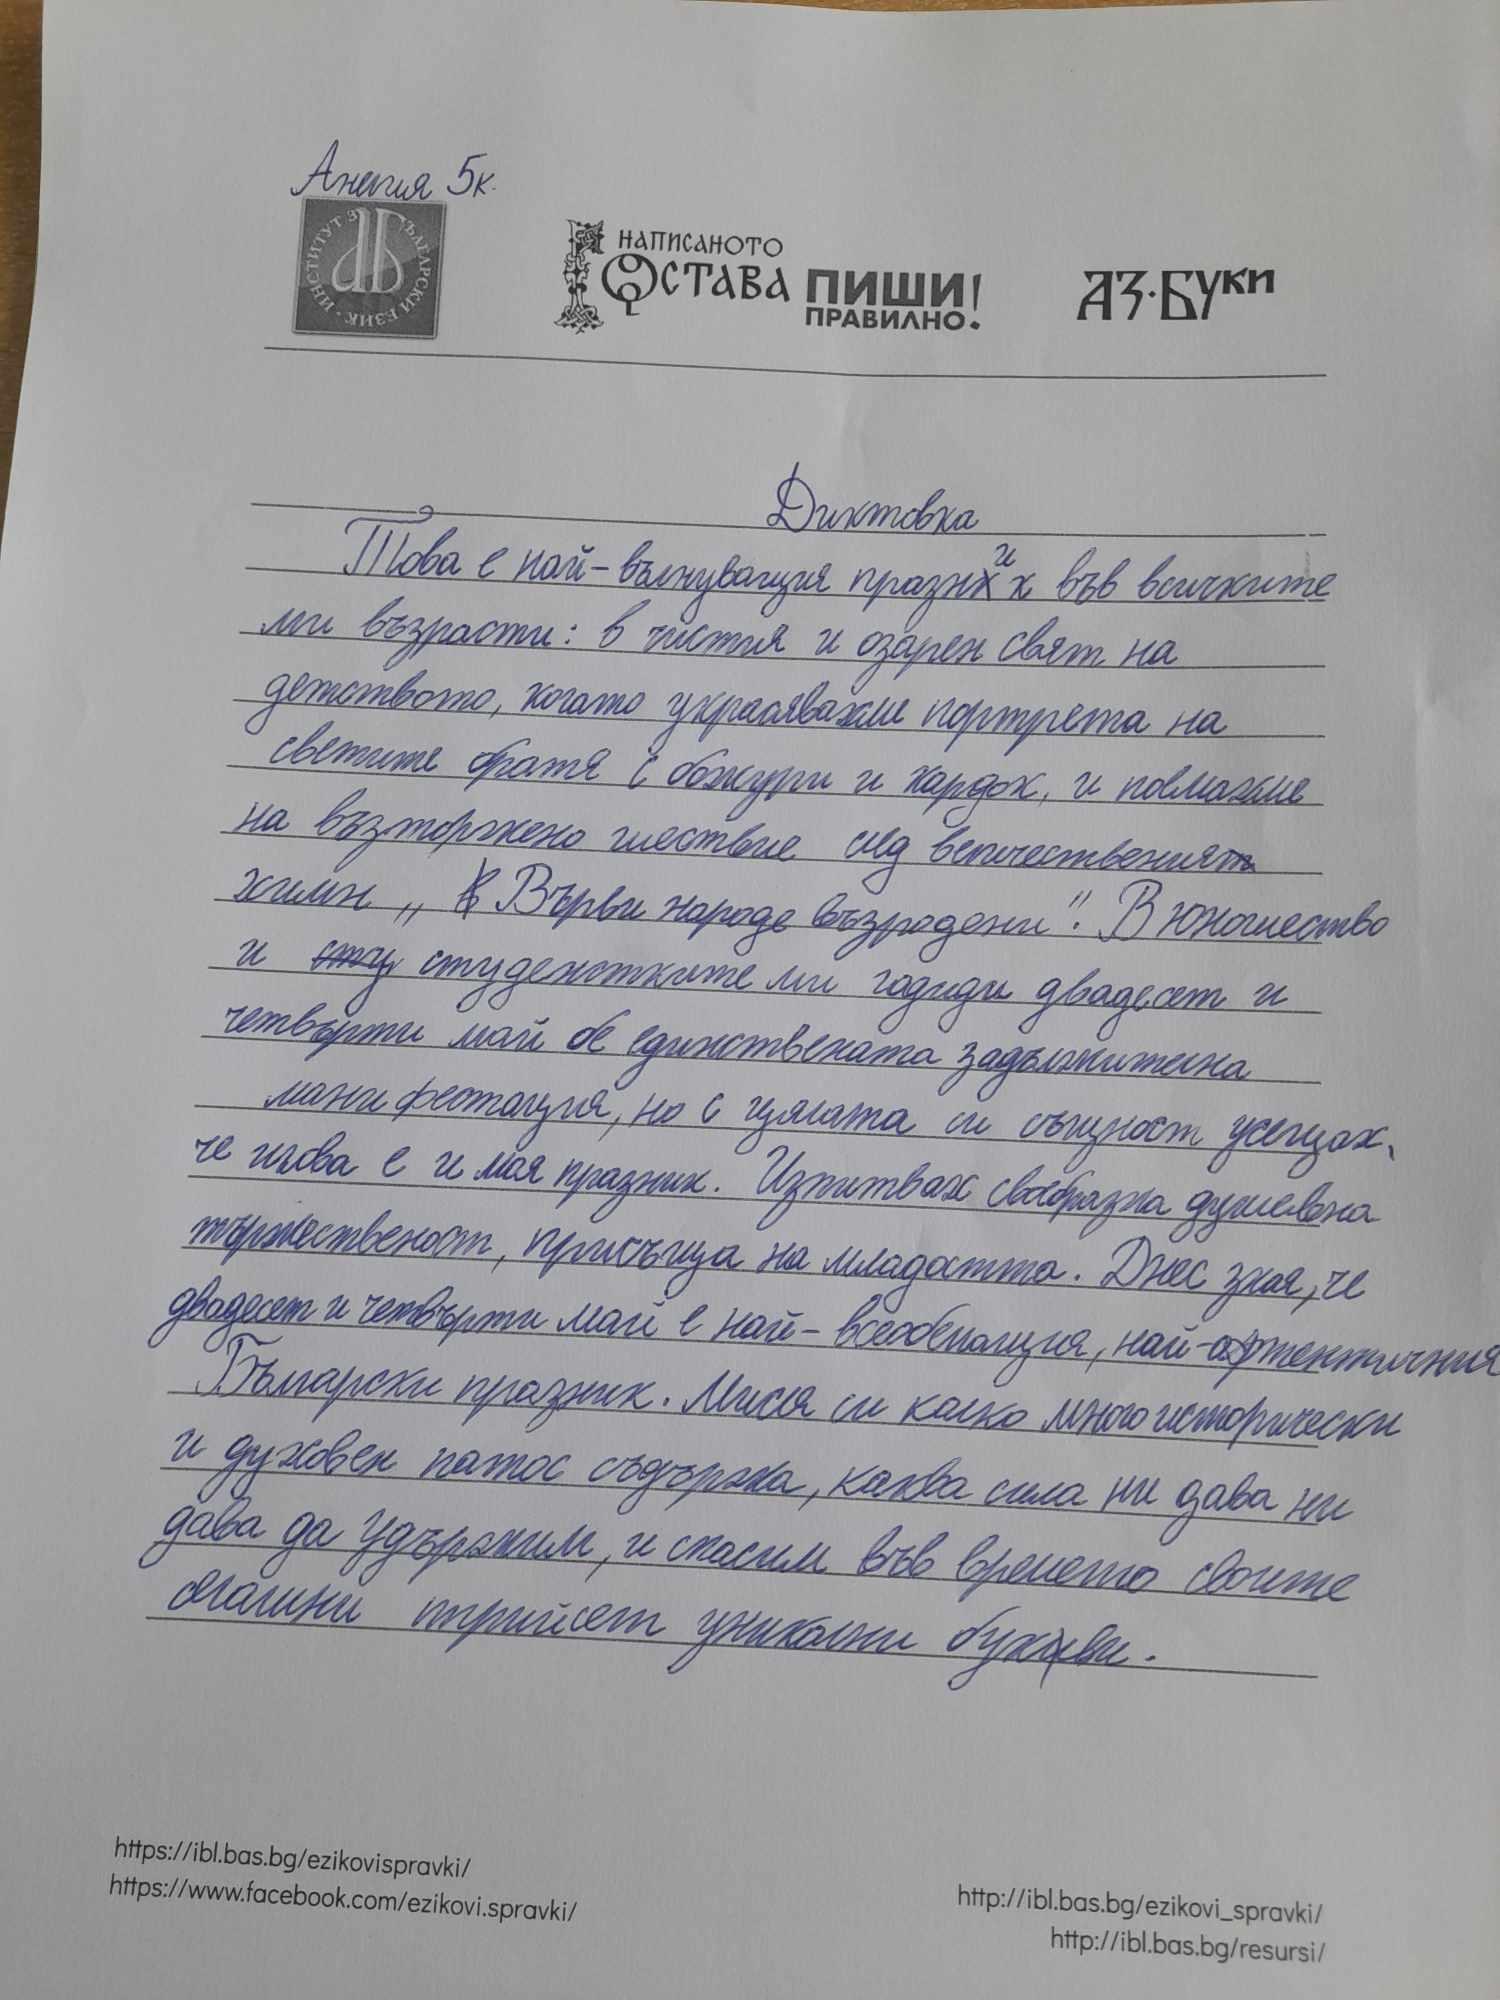 Анелия 5к.
ИНСТИТУТ ЗА БЪЛГАРСКИ ЕЗИК
НАПИСАНОТО
ОСТАВА ПИШИ!
ПРАВИЛНО.
АЗ·БУКИ
Диктовка
Това е най-вълнуващия празник във всичките
ми възрасти: в чистия и озарен свят на
детството, когато украсявахме портрета на
светите братя с божури и кардох, и повлахме
на възторжено шествие след величествения
химн „Върви народе възродени". В юношество
и студенстките ми годиди двадесет и
четвърти май бе единствената задължителна
манифестация, но с цялата си същност усещах,
че това е и моя празник. Изпитвах своебразна душевна
тържественост, присъща на младостта. Днес зная, че
двадесет и четвърти май е най-всеобепация, най-автентичния
Български празник. Мисля си колко много исторически
и духовен патос съдържа, каква сила ни дава ни
дава да удържим, и спасим във времето своите
сегашни трийсет уникални букви.
https://ibl.bas.bg/ezikovispravki/
https://www.facebook.com/ezikovi.spravki/
http://ibl.bas.bg/ezikovi_spravki/
http://ibl.bas.bg/resursi/